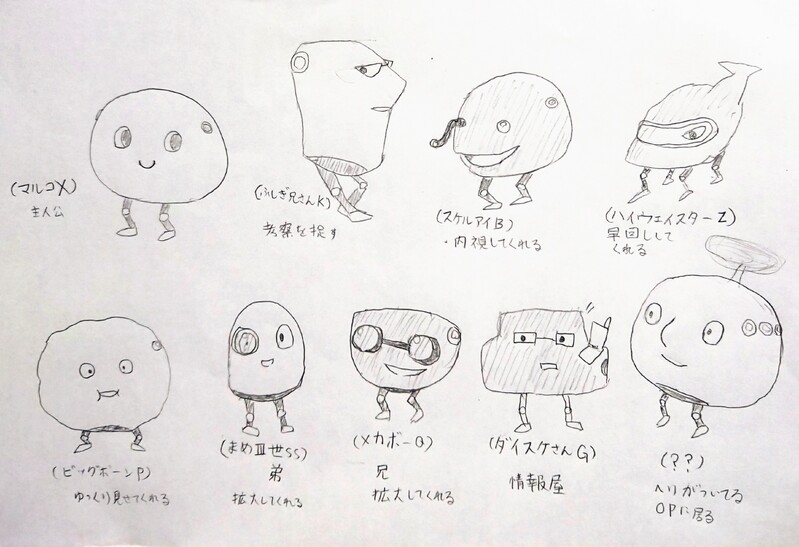 (マルコX)
主人公
(ふしぎ兄さんK)
考察を促す
(スケルアイB)
・内視してくれる
(ハイウェイスターZ)
早回しして
くれる
(ビッグボーンP)
ゆっくり見せてくれる
(まめⅢ世SS)
弟
拡大してくれる
(メカボーQ)
兄
拡大してくれる
(ダイスケさんG)
情報屋
(??)
ヘリがついてる
OPに居る